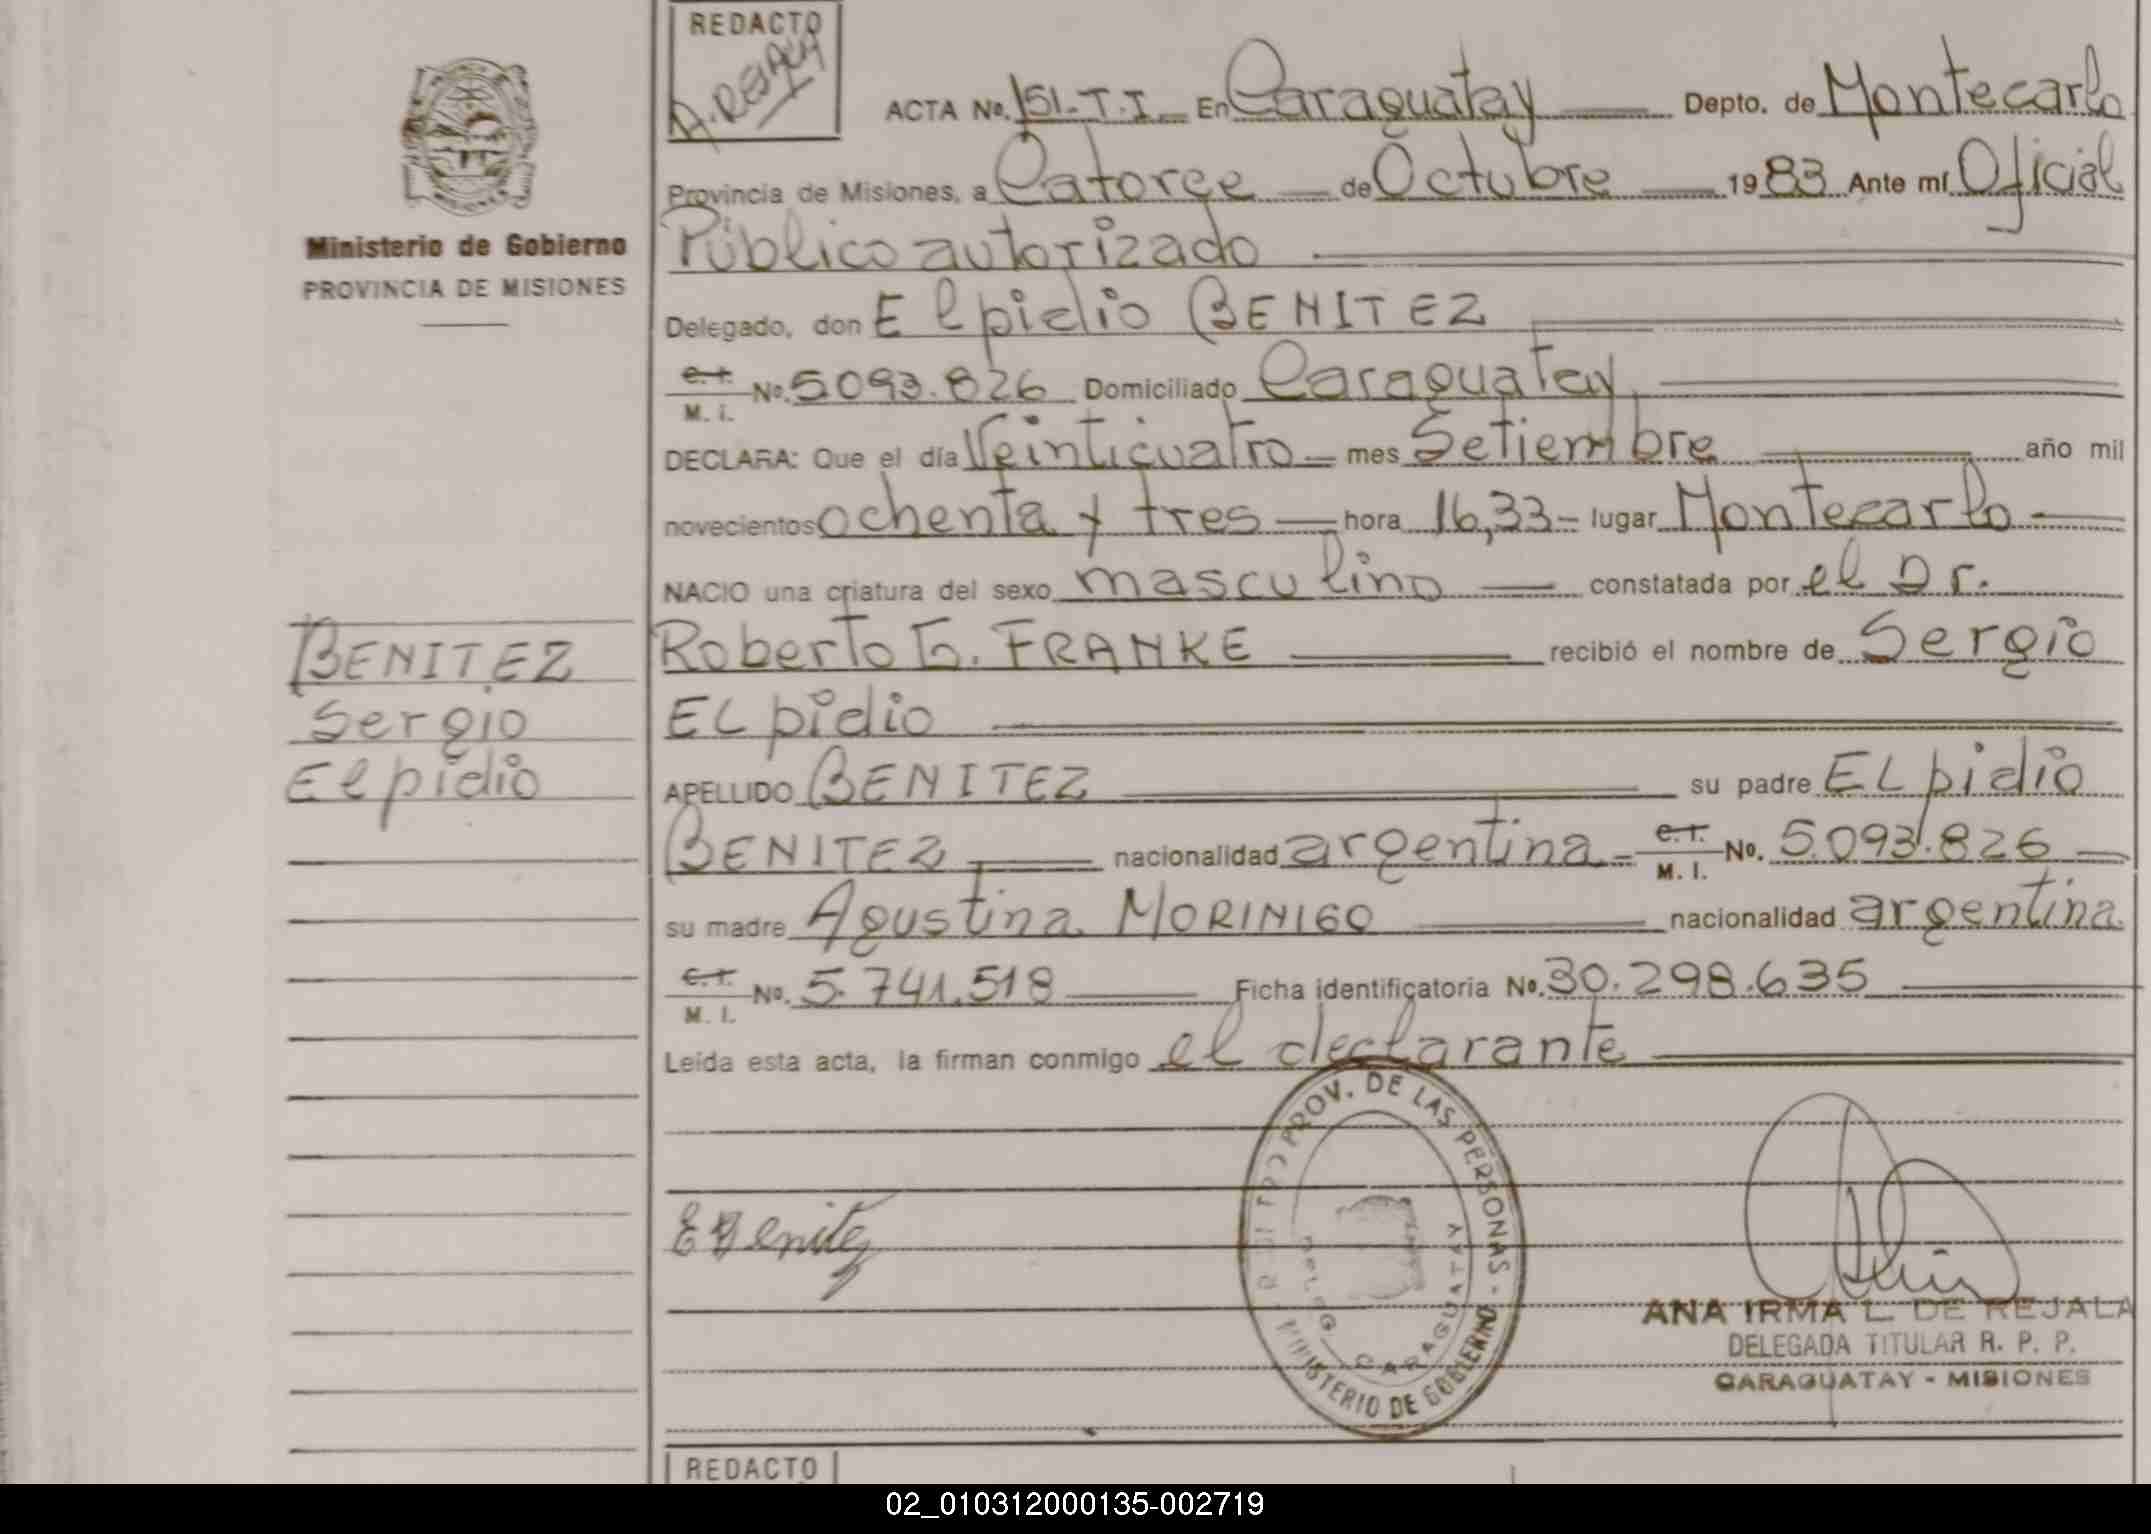 REDACTO
A. REJALA
ACTA No. 151-T.I. En Caraguatay Depto. de Montecarlo
Provincia de Misiones, a Catorce de Octubre 1983 Ante mí Oficial
Público autorizado
Delegado, don Elpidio BENITEZ
C.I. M. I. No. 5.093.826 Domiciliado Caraguatay
DECLARA: Que el día Veinticuatro mes Setiembre año mil
novecientos ochenta y tres hora 16,33 lugar Montecarlo
NACIO una criatura del sexo masculino constatada por el Dr.
Roberto G. FRANKE recibió el nombre de Sergio
ELpidio
APELLIDO BENITEZ su padre ELpidio
BENITEZ nacionalidad argentina C.I. M. I. No. 5.093.826
su madre Agustina MORINIGO nacionalidad argentina
C.I. M. I. No. 5.741.518 Ficha identificatoria No. 30.298.635
Leída esta acta, la firman conmigo el declarante
Ministerio de Gobierno
PROVINCIA DE MISIONES
BENITEZ
Sergio
Elpidio
E Benitez
PROV. DE LAS PERSONAS -
MINISTERIO DE GOBIERNO
DELEG. CARAGUATAY
ANA IRMA L. DE REJALA
DELEGADA TITULAR R. P. P.
CARAGUATAY - MISIONES
REDACTO
02_010312000135-002719